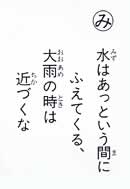 み
水はあっという間に
ふえてくる、
大雨の時は
近づくな